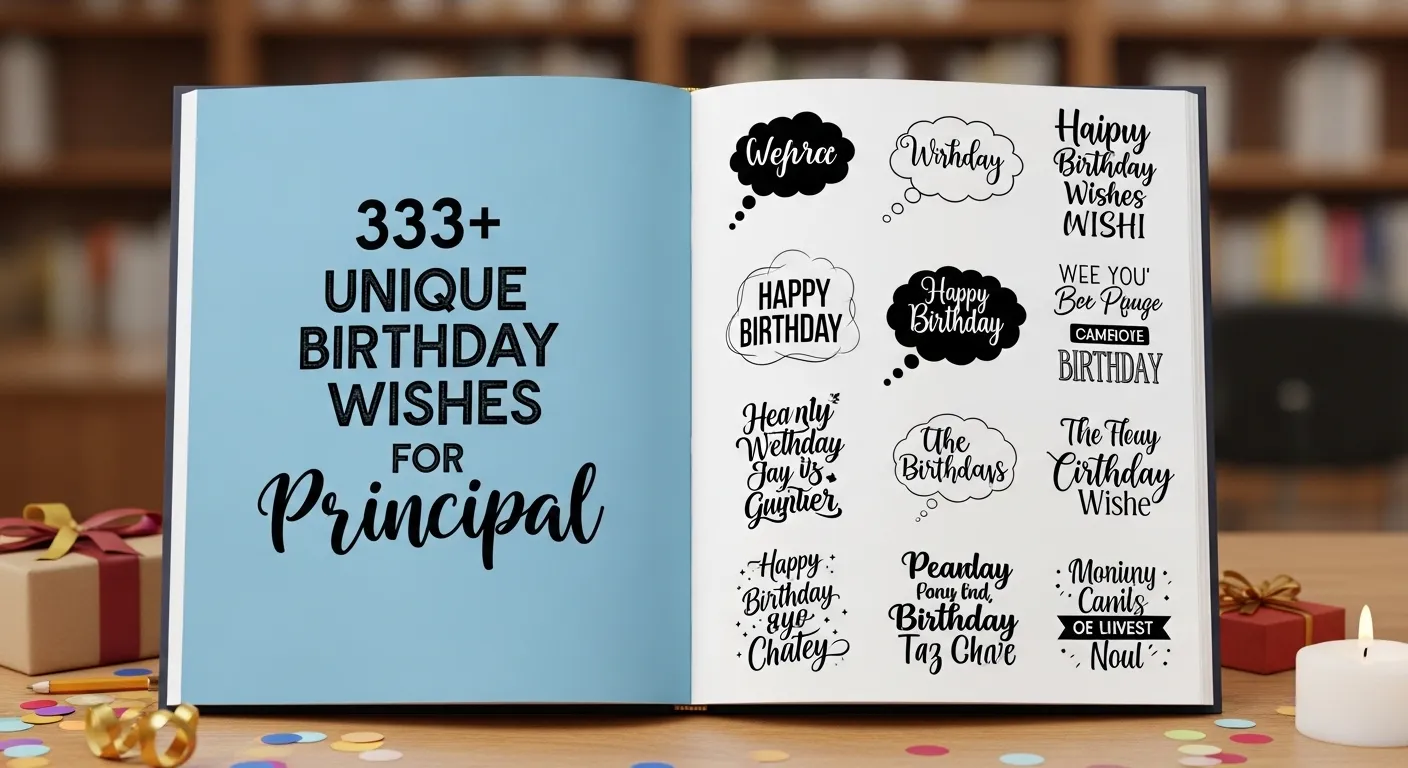 333+
UNIQUE
BIRTHDAY
WISHES
FOR
Principal
Wefrce
Wirhday
Haipuy
Birthday
Wishes
WISHI
HAPPY
BIRTHDAY
Happy
Birthday
WEE YOU'
Bce Pauge
CAMFIOYE
BIRTHDAY
Heanly
Wethday
Jay its
Guytuer
The
Birthdays
The Fleuy
Cirthday
Wishe
Happy
Birthday
ayo
Chatey
Peanday
Pony End,
Birthday
Taz Chave
Moniuny
Canils
OE LIIVEST
Noul